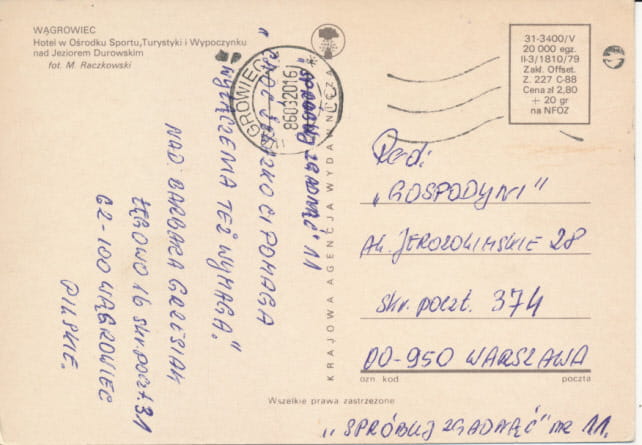 WĄGROWIEC
Hotel w Ośrodku Sportu, Turystyki i Wypoczynku
nad Jeziorem Durowskim
fot. M. Raczkowski
WĄGROWIEC
860320161
31-3400/V
20 000 egz.
II-3/1810/79
Zakł. Offset.
Z. 227 C-88
Cena zł 2,80
+ 20 gr
na NFOZ
"SPRÓBUJ ZGADNĄĆ" 11
CI POMAGA
WYTĘŻENIA TEŻ WYMAGA."
NAD BARBARA GRZESIAK
ŁĘGOWO 16 skr. poczt 31
62-100 WĄGROWIEC
PILSKIE.
KRAJOWA AGENCJA WYDAWNICZA
Red:
"GOSPODYNI"
AL. JEROZOLIMSKIE 28
skr. poczt. 374
00-950 WARSZAWA
ozn kod poczta
Wszelkie prawa zastrzeżone
"SPRÓBUJ ZGADNĄĆ" nr 11.